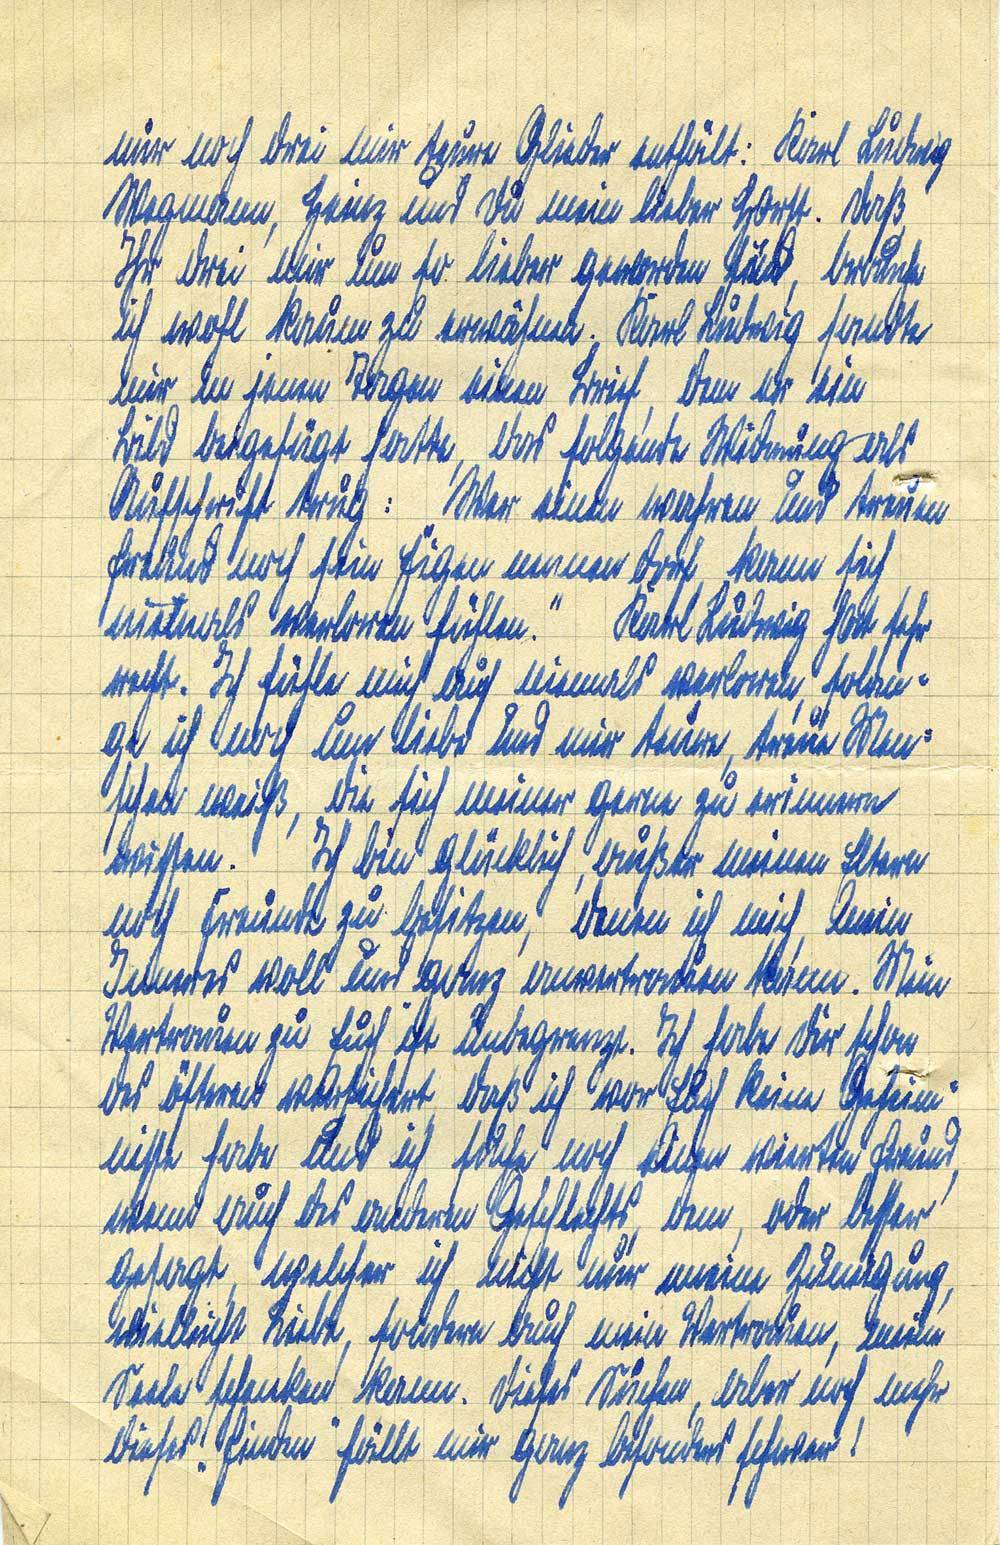 nur noch drei mir teure Glieder enthält: Karl Ludwig
Wegmann, Heinz und Du mein lieber Horst. Daß
Ihr drei mir um so lieber geworden seid, brauche
ich wohl kaum zu erwähnen. Karl Ludwig sandte
mir in jenen Tagen einen Brief, dem er ein
Bild beigefügt hatte, das folgende Widmung als
Aufschrift trug: "Wer einen wahren und treuen
Freund noch sein Eigen nennen darf, kann sich
niemals verloren fühlen." Karl Ludwig hat sehr
recht. Ich fühle mich auch niemals verloren, solan-
ge ich noch um liebe und mir teure, treue Men-
schen weiß, die sich meiner gerne zu erinnern
wissen. Ich bin glücklich, außer meinen Eltern
noch Freunde zu besitzen, denen ich mich, mein
Inneres voll und ganz anvertrauen kann. Mein
Vertrauen zu Euch ist unbegrenzt. Ich habe Dir schon
des öfteren versichert, daß ich vor Euch keine Geheim-
nisse habe und ich suche noch einen vierten Freund,
wenn auch des anderen Geschlechts, dem, oder besser
gesagt, welcher ich nicht nur meine Zuneigung,
vielleicht Liebe, sondern auch mein Vertrauen, meine
Seele schenken kann. Dieses Suchen, aber noch mehr
dieses "Finden" fällt mir ganz besonders schwer!